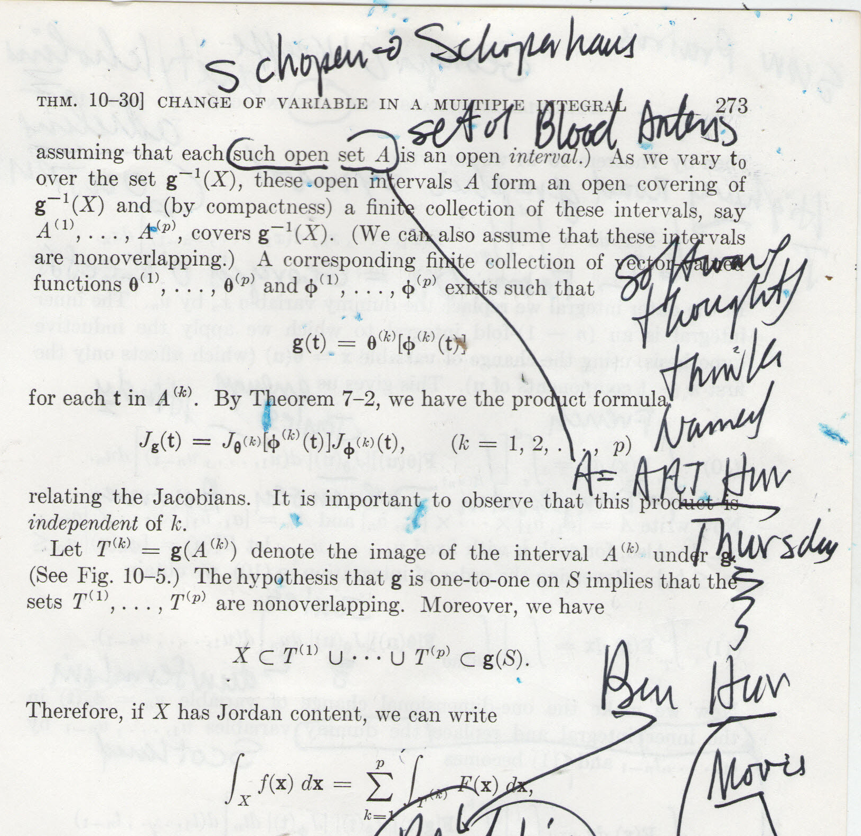 Schopen-o Schoperhaus
THM. 10–30] CHANGE OF VARIABLE IN A MULTIPLE INTEGRAL 273
set of Blood
assuming that each such open set A is an open interval.) As we vary t₀
over the set g⁻¹(X), these open intervals A form an open covering of
g⁻¹(X) and (by compactness) a finite collection of these intervals, say
A⁽¹⁾, . . . , A⁽ᵖ⁾, covers g⁻¹(X). (We can also assume that these intervals
are nonoverlapping.) A corresponding finite collection of vector-valued
functions θ⁽¹⁾, . . . , θ⁽ᵖ⁾ and ϕ⁽¹⁾, . . . , ϕ⁽ᵖ⁾ exists such that
thoughts
g(t) = θ⁽ᵏ⁾[ϕ⁽ᵏ⁾(t)]
Thinker
for each t in A⁽ᵏ⁾. By Theorem 7–2, we have the product formula
Named
J_g(t) = J_θ⁽ᵏ⁾[ϕ⁽ᵏ⁾(t)]J_ϕ⁽ᵏ⁾(t), (k = 1, 2, . . . , p)
A = AAT Hur
relating the Jacobians. It is important to observe that this product is
independent of k.
Thursday
Let T⁽ᵏ⁾ = g(A⁽ᵏ⁾) denote the image of the interval A⁽ᵏ⁾ under g.
(See Fig. 10–5.) The hypothesis that g is one-to-one on S implies that the
sets T⁽¹⁾, . . . , T⁽ᵖ⁾ are nonoverlapping. Moreover, we have
X ⊂ T⁽¹⁾ ∪ · · · ∪ T⁽ᵖ⁾ ⊂ g(S).
Ben Hur
Therefore, if X has Jordan content, we can write
Movies
∫_X f(x) dx = ∑_{k=1}^{p} ∫_{T⁽ᵏ⁾} F(x) dx,